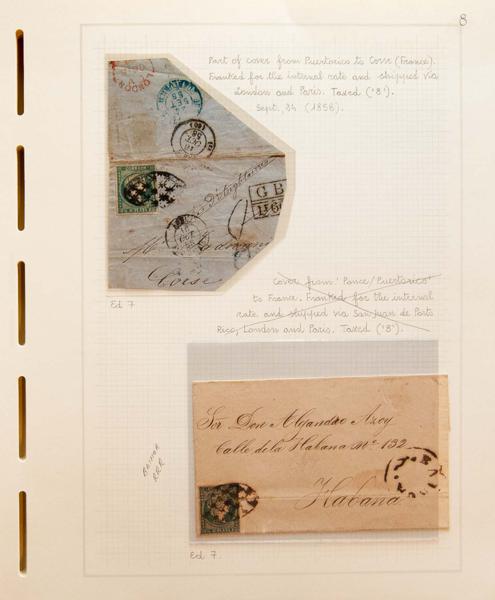 8
Part of cover from Puertorico to Corse (France).
Franked for the internal rate and shipped via
London and Paris. Taxed ('8').
Sept. 24 (1858).
LONDON
CORREOS
G B
1F60
Corse
Ed 7
Cover from 'Ponce/Puertorico'
to France. Franked for the internal
rate and shipped via San Juan de Porto
Rico, London and Paris. Taxed ('8').
Sor. Don Alejandro Azoy
Calle de la Habana No. 132
Habana
RRR
Ed 7.